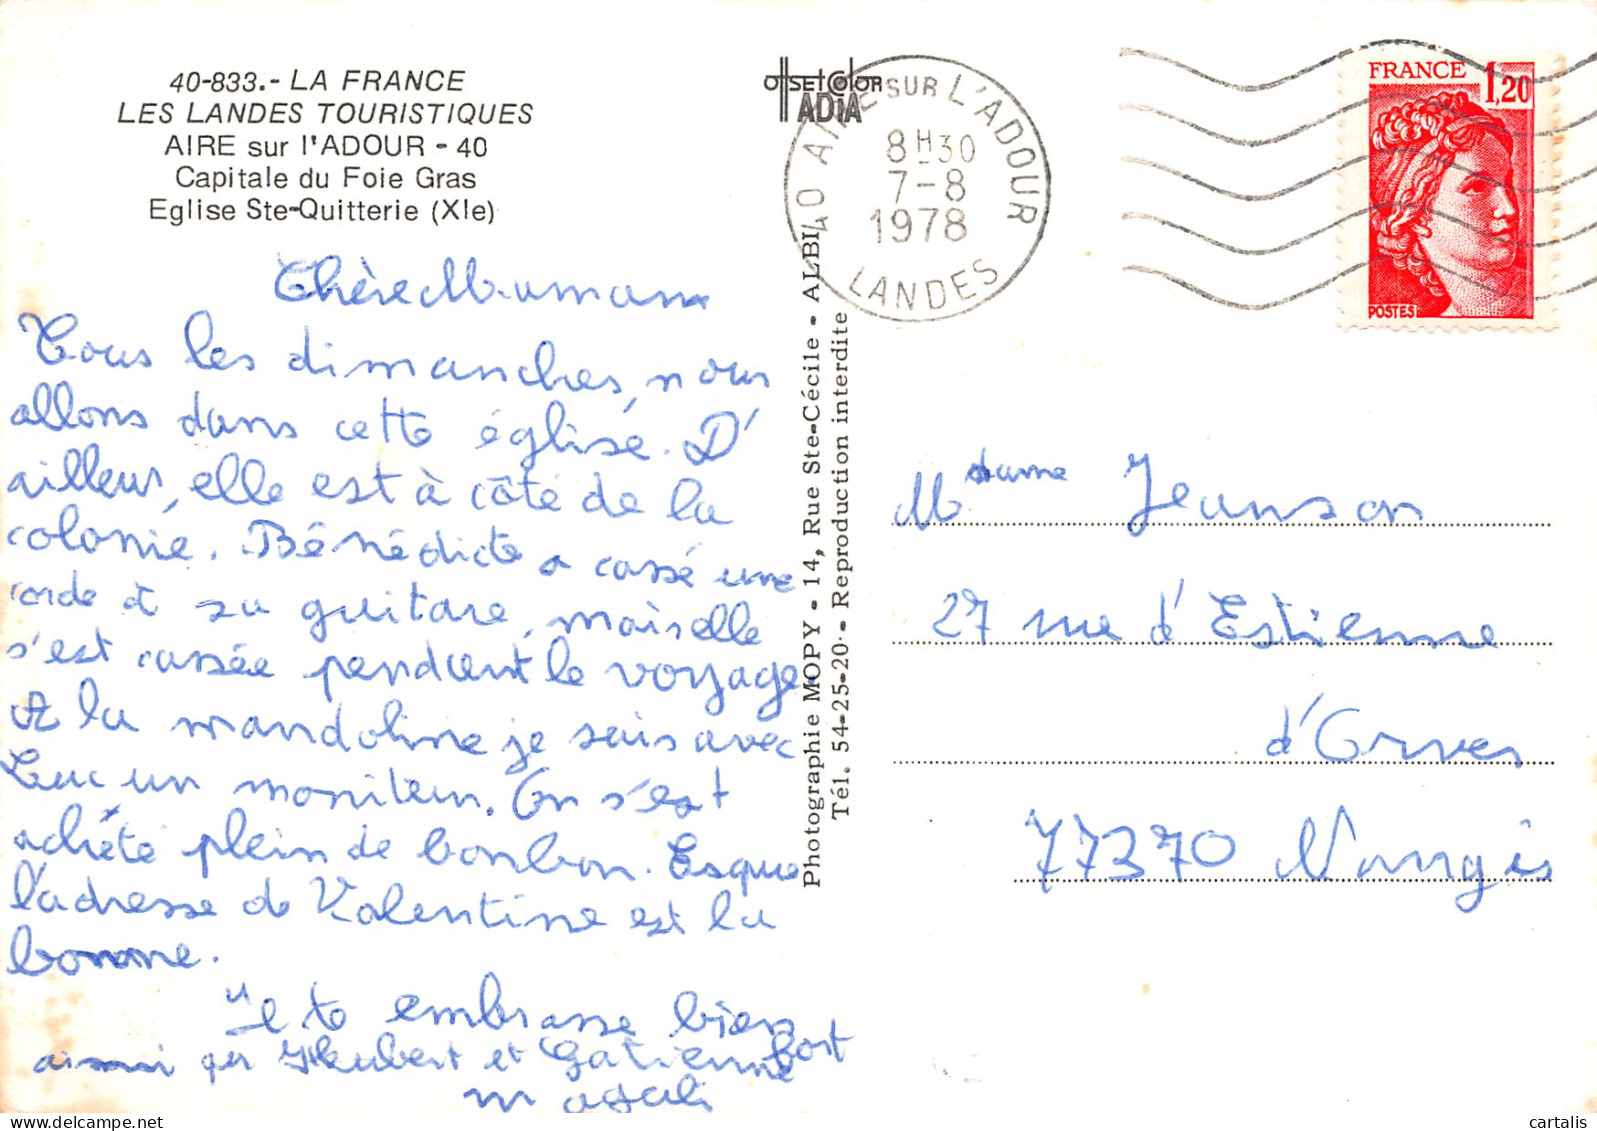 40-833.- LA FRANCE
LES LANDES TOURISTIQUES
AIRE sur l'ADOUR - 40
Capitale du Foie Gras
Eglise Ste-Quitterie (XIe)
Chère Maman
Tous les dimanches, nous
allons dans cette église. D'
ailleur, elle est à côté de la
colonie. Bénédicte a cassé une
corde à sa guitare, mais elle
s'est cassée pendant le voyage.
A la mandoline je suis avec
Luc un moniteur. On s'est
achété plein de bonbon. Esque
l'adresse de Valentine est la
bonne.
Je te embrasse bien fort
ainsi que Hubert et Gatienne
magali
offset color
ADIA
40 AIRE SUR L'ADOUR
8H30
7-8
1978
LANDES
FRANCE
1,20
POSTES
Photographie MOPY - 14, Rue Ste-Cécile - ALBI
Tél. 54-25-20 - Reproduction interdite
Madame Jeanson
27 rue d'Estienne
d'Orves
77370 Nangis
cartalis